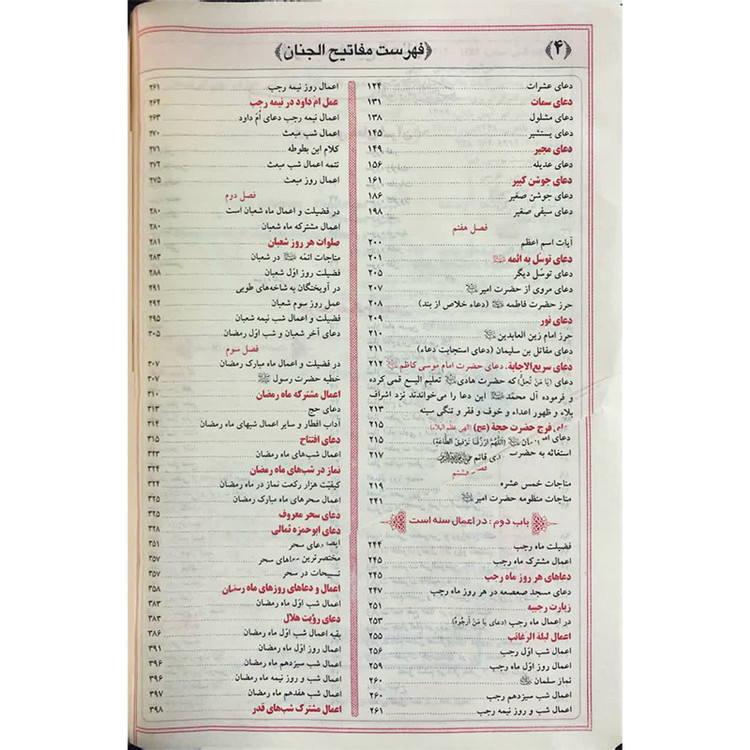 ﴿۴﴾ ﴿فهرست مفاتیح الجنان﴾
دعای عشرات ۱۲۴
دعای سمات ۱۳۱
دعای مشلول ۱۳۸
دعای یستشیر ۱۴۵
دعای مجیر ۱۴۹
دعای عدیله ۱۵۶
دعای جوشن کبیر ۱۶۱
دعای جوشن صغیر ۱۸۶
دعای سیفی صغیر ۱۹۸
فصل هفتم
آیات اسم اعظم ۲۰۰
دعای توسّل به ائمه ۲۰۱
دعای توسّل دیگر ۲۰۵
دعای مروی از حضرت امیر ۲۰۷
حرز حضرت فاطمه (دعاء خلاص از بند) ۲۰۸
دعای نور ۲۰۹
حرز امام زین العابدین ۲۱۰
دعای مقاتل بن سلیمان (دعای استجابت دعاء) ۲۱۱
دعای سریع‌الاجابة، دعای حضرت امام موسی کاظم ۲۱۲
دعای (یَا مَنْ تُحَلُّ) که حضرت هادی تعلیم الیسع قمی کرده
و فرموده آل محمّد این دعا را می‌خواندند نزد اشراف
بلاء و ظهور اعداء و خوف و فقر و تنگی سینه ۲۱۳
فرج حضرت حجة (عج) (الهی عظم البلاء) ۲۱۵
دعای (اللّهُمَّ ارْزُقْنا تَوْفِیقَ الطّاعَةِ) ۲۱۵
استغاثه به حضرت قائم ۲۱۷
مناجات خمس عشره ۲۱۹
مناجات منظومه حضرت امیر ۲۴۱
باب دوم: در اعمال سنه است
فضیلت ماه رجب ۲۴۴
اعمال مشترک ماه رجب ۲۴۵
دعاهای هر روز ماه رجب ۲۴۵
دعای مسجد صعصعه در هر روز ماه رجب ۲۴۷
زیارت رجبیه ۲۵۱
در اعمال ماه رجب (دعای یَا مَنْ اَرْجُوهُ) ۲۵۳
اعمال لیلة الرغائب ۲۵۵
اعمال شب اوّل رجب ۲۵۶
اعمال روز اوّل رجب ۲۵۹
نماز سلمان ۲۶۰
اعمال شب سیزدهم رجب ۲۶۰
اعمال شب و روز نیمه رجب ۲۶۱
اعمال روز نیمه رجب ۲۶۱
عمل ام داود در نیمه رجب ۲۶۲
اعمال نیمه رجب دعای اُمّ داود ۲۶۳
اعمال شب مبعث ۲۷۰
کلام ابن بطوطه ۲۷۱
تتمه اعمال شب مبعث ۲۷۲
اعمال روز مبعث ۲۷۵
فصل دوم
در فضیلت و اعمال ماه شعبان است ۲۸۰
اعمال مشترکه ماه شعبان ۲۸۰
صلوات هر روز شعبان ۲۸۱
مناجات ائمّه در شعبان ۲۸۳
فضیلت روز اوّل شعبان ۲۸۸
در آویختگان به شاخه‌های طوبی ۲۹۱
عمل روز سوم شعبان ۲۹۲
فضیلت و اعمال شب نیمه شعبان ۲۹۵
دعای آخر شعبان و شب اوّل رمضان ۳۰۵
فصل سوم
در فضیلت و اعمال ماه مبارک رمضان ۳۰۷
خطبه حضرت رسول ۳۰۷
اعمال مشترکه ماه رمضان ۳۱۰
دعای حج ۳۱۳
آداب افطار و سایر اعمال شبهای ماه رمضان ۳۱۴
دعای افتتاح ۳۱۵
اعمال شب‌های ماه رمضان ۳۲۲
نماز در شب‌های ماه رمضان ۳۲۴
کیفیّت هزار رکعت نماز در ماه رمضان ۳۲۴
اعمال سحرهای ماه مبارک رمضان ۳۲۵
دعای سحر معروف ۳۲۵
دعای ابوحمزه ثمالی ۳۲۸
دعای سحر ۳۵۱
مختصرترین دعاهای سحر ۳۵۷
تسبیحات در سحر ۳۵۷
اعمال و دعاهای روزهای ماه رمضان ۳۵۸
اعمال شب اوّل ماه رمضان ۳۸۳
دعای رؤیت هلال ۳۸۳
بقیه اعمال شب اوّل ماه رمضان ۳۸۶
اعمال روز اوّل ماه رمضان ۳۹۱
اعمال شب سیزدهم ماه رمضان ۳۹۶
اعمال شب و روز نیمه ماه رمضان ۳۹۶
اعمال شب هفدهم ماه رمضان ۳۹۷
اعمال مشترک شب‌های قدر ۳۹۸